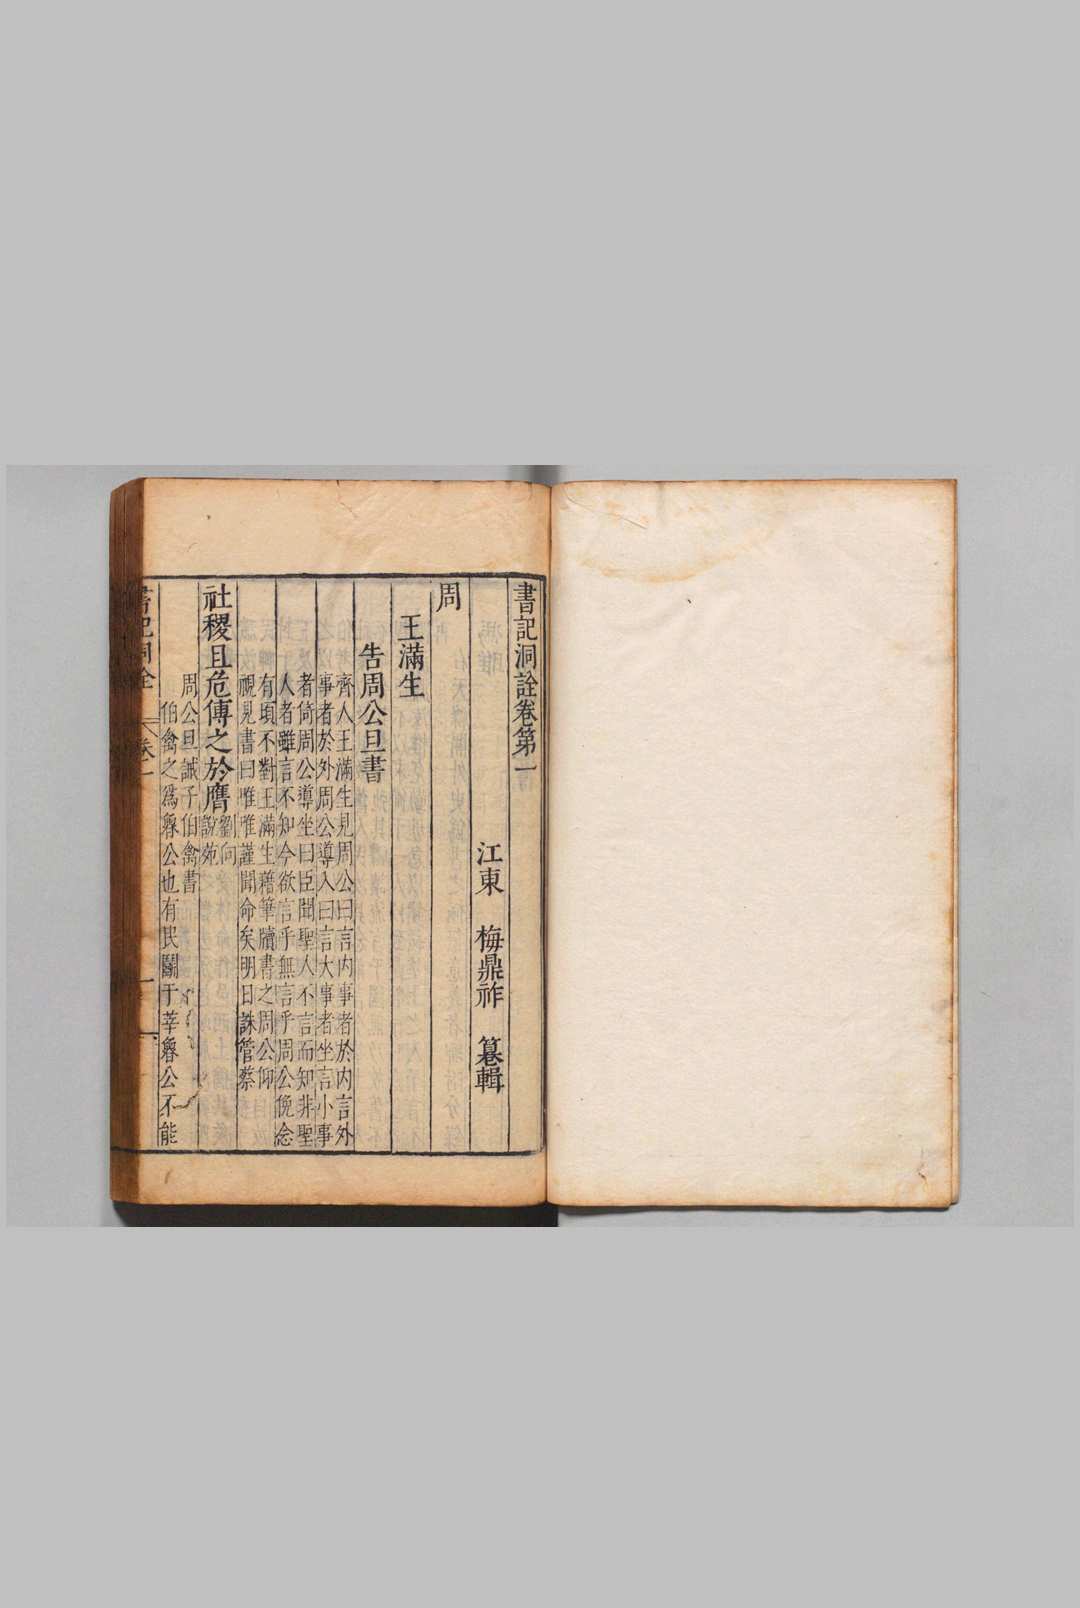 書記洞詮卷第一
江東 梅鼎祚 篹輯
周
王滿生
告周公旦書
齊人王滿生見周公曰言內事者於內言外
事者於外周公導入曰言大事者坐言小事
者倚周公導坐曰臣聞聖人不言而知非聖
人者雖言不知今欲言乎無言乎周公俛念
有頃不對王滿生藉筆牘書之周公仰
視見書曰唯唯謹聞命矣明日誅管蔡
社稷且危傅之於膺
劉向
說苑
周公旦誡子伯禽書
伯禽之為魯公也有民鬭于莘魯公不能
書記洞詮
卷一
一